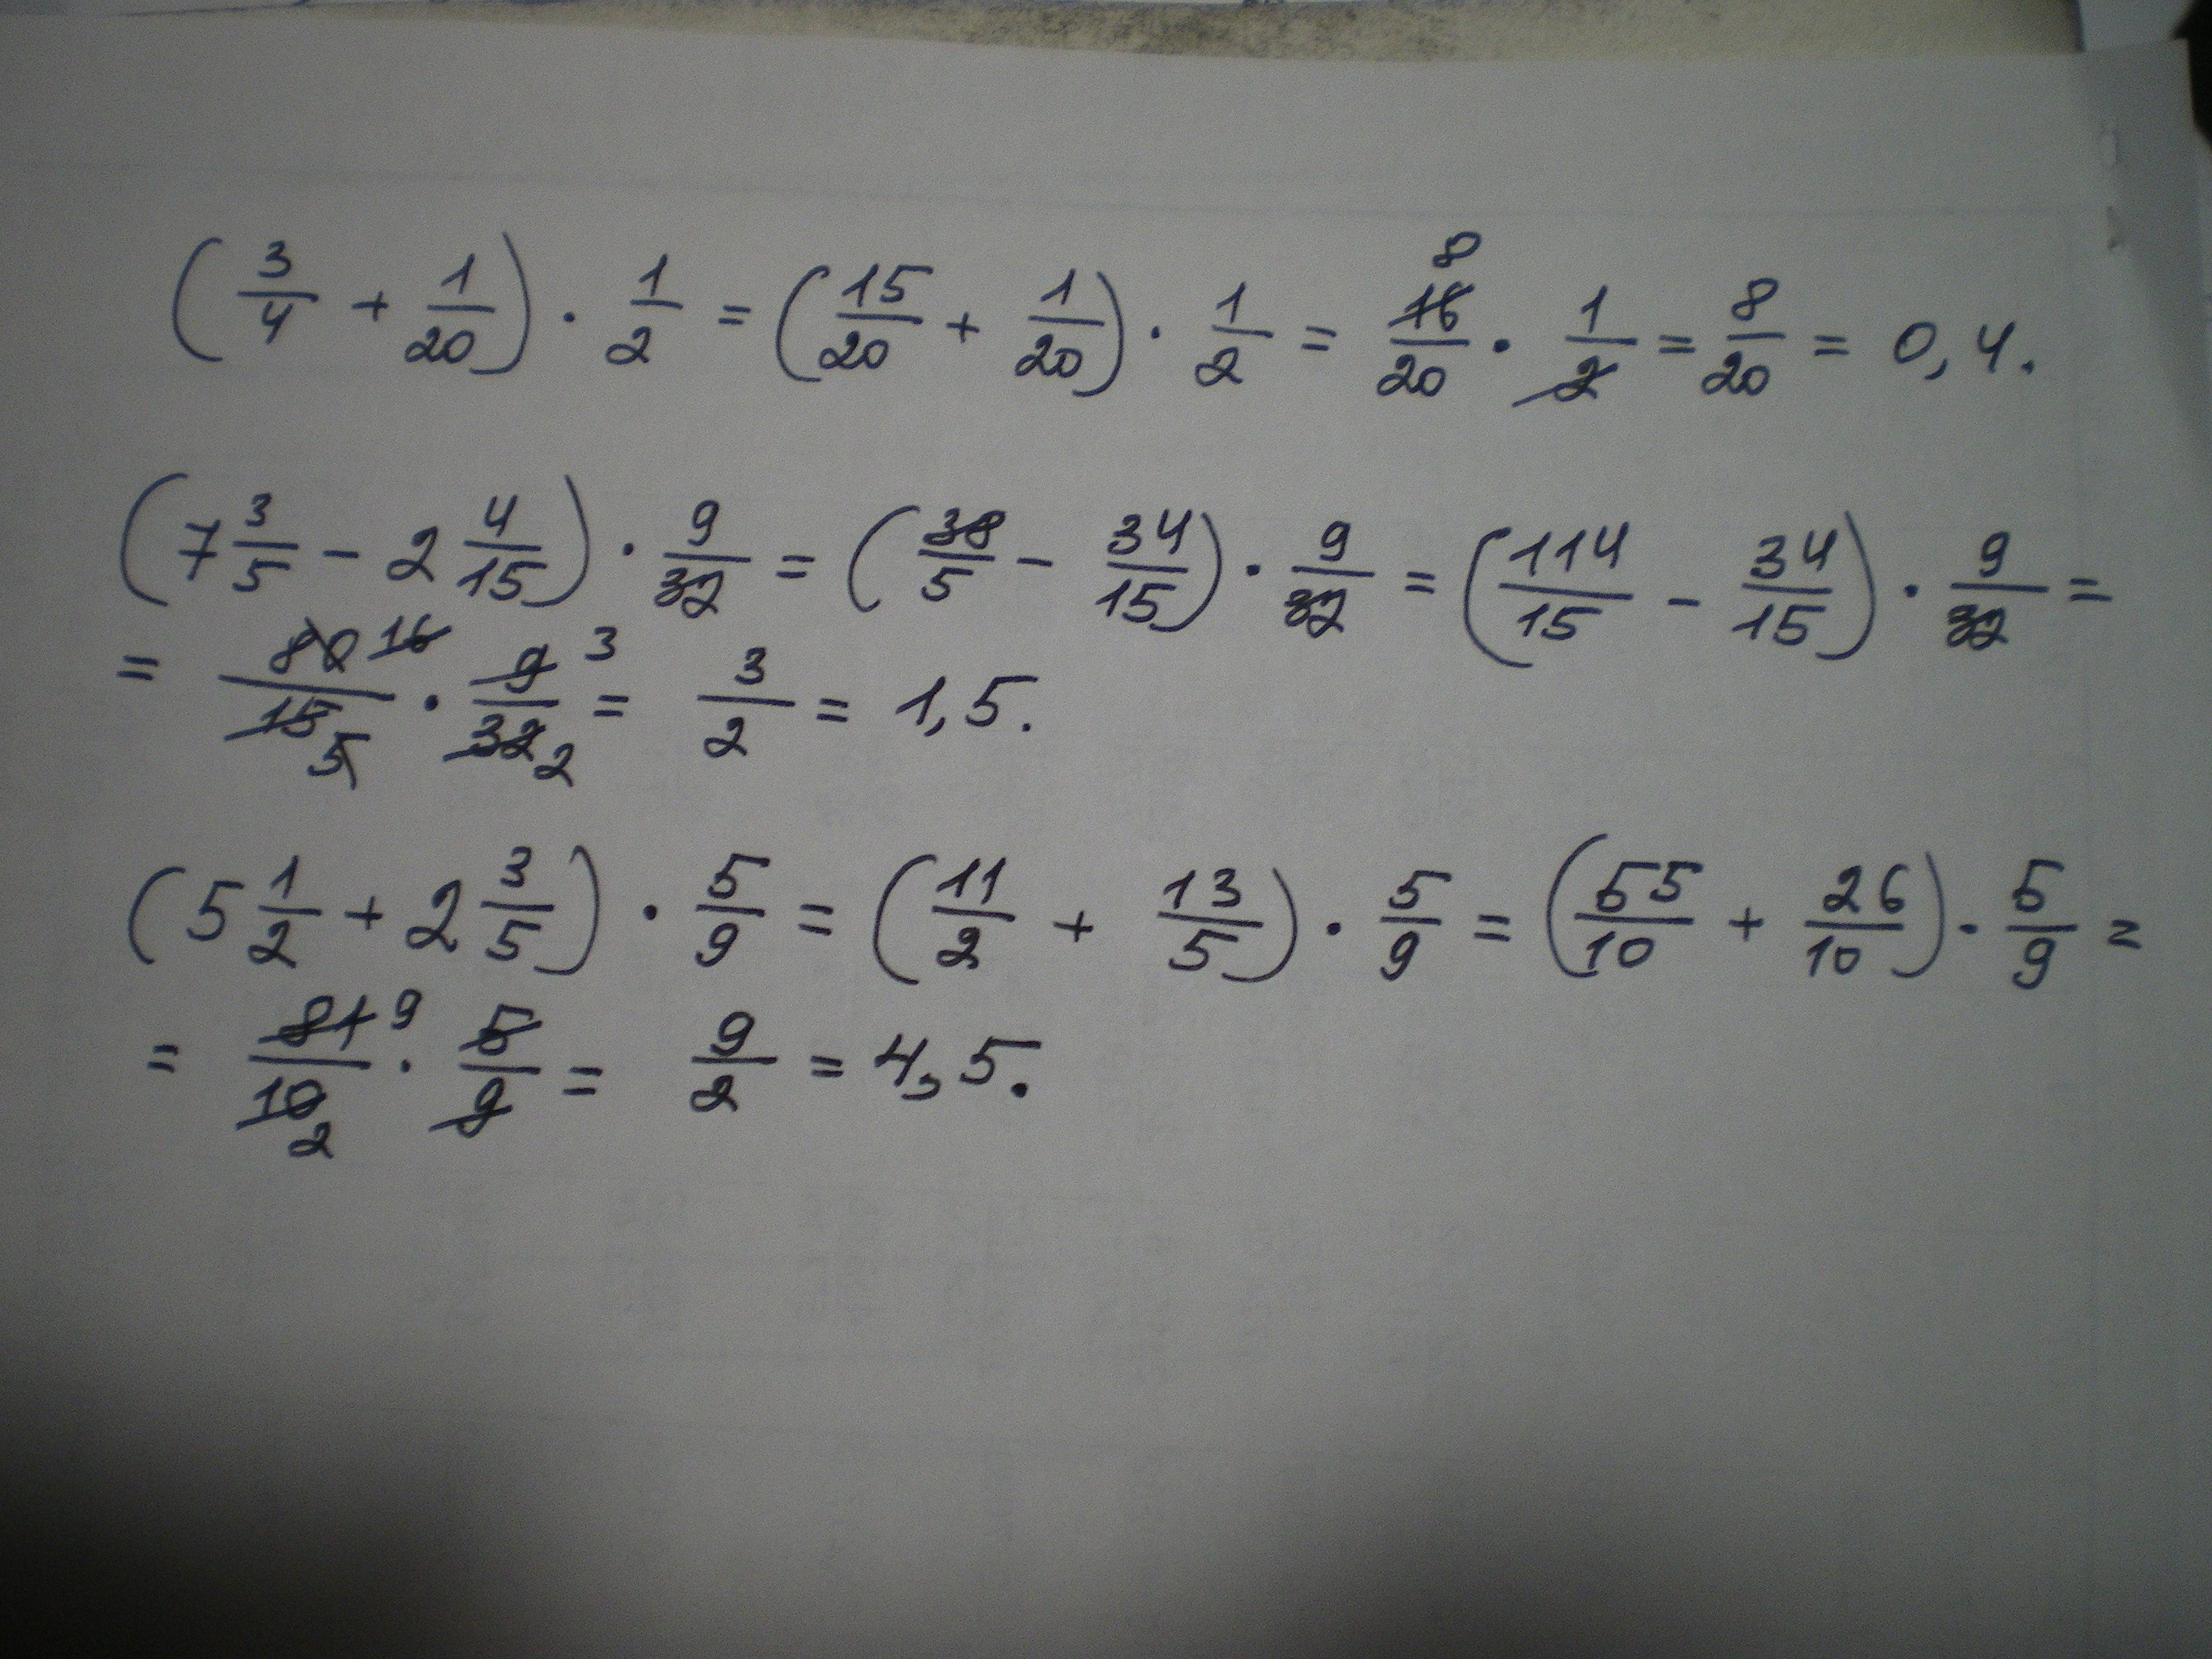 (3/4 + 1/20) · 1/2 = (15/20 + 1/20) · 1/2 = 16/20 8 · 1/2 = 8/20 = 0,4.
(7 3/5 - 2 4/15) · 9/32 = (38/5 - 34/15) · 9/32 = (114/15 - 34/15) · 9/32 =
= 80 16/15 5 · 9 3/32 2 = 3/2 = 1,5.
(5 1/2 + 2 3/5) · 5/9 = (11/2 + 13/5) · 5/9 = (55/10 + 26/10) · 5/9 =
= 81 9/10 2 · 5/9 = 9/2 = 4,5.